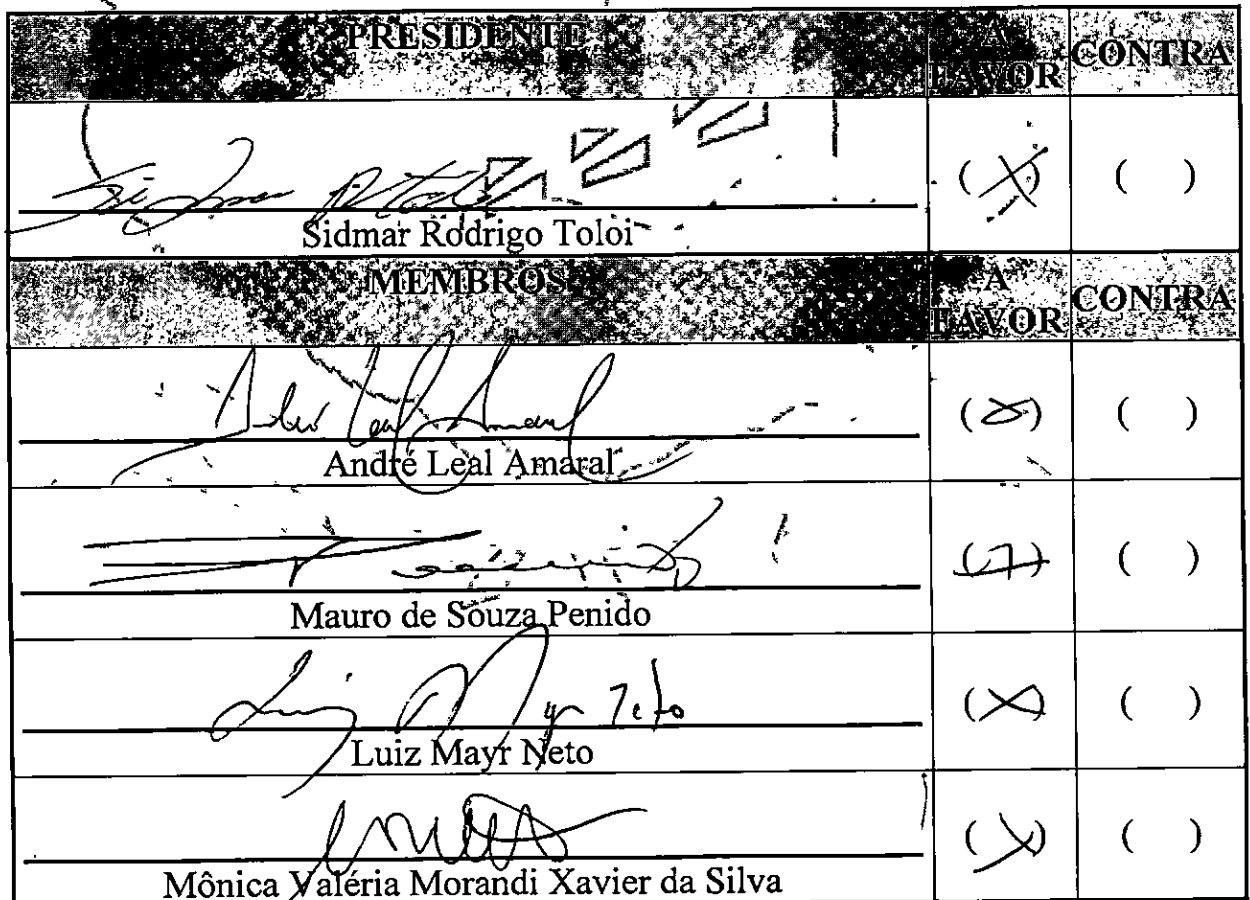 PRESIDENTE A FAVOR CONTRA
(X) ( )
Sidmar Rodrigo Toloi
MEMBROS A FAVOR CONTRA
André Leal Amaral (X) ( )
André Leal Amaral
( )
Mauro de Souza Penido
Luiz Mayr Neto (X) ( )
Luiz Mayr Neto
(X) ( )
Mônica Valéria Morandi Xavier da Silva